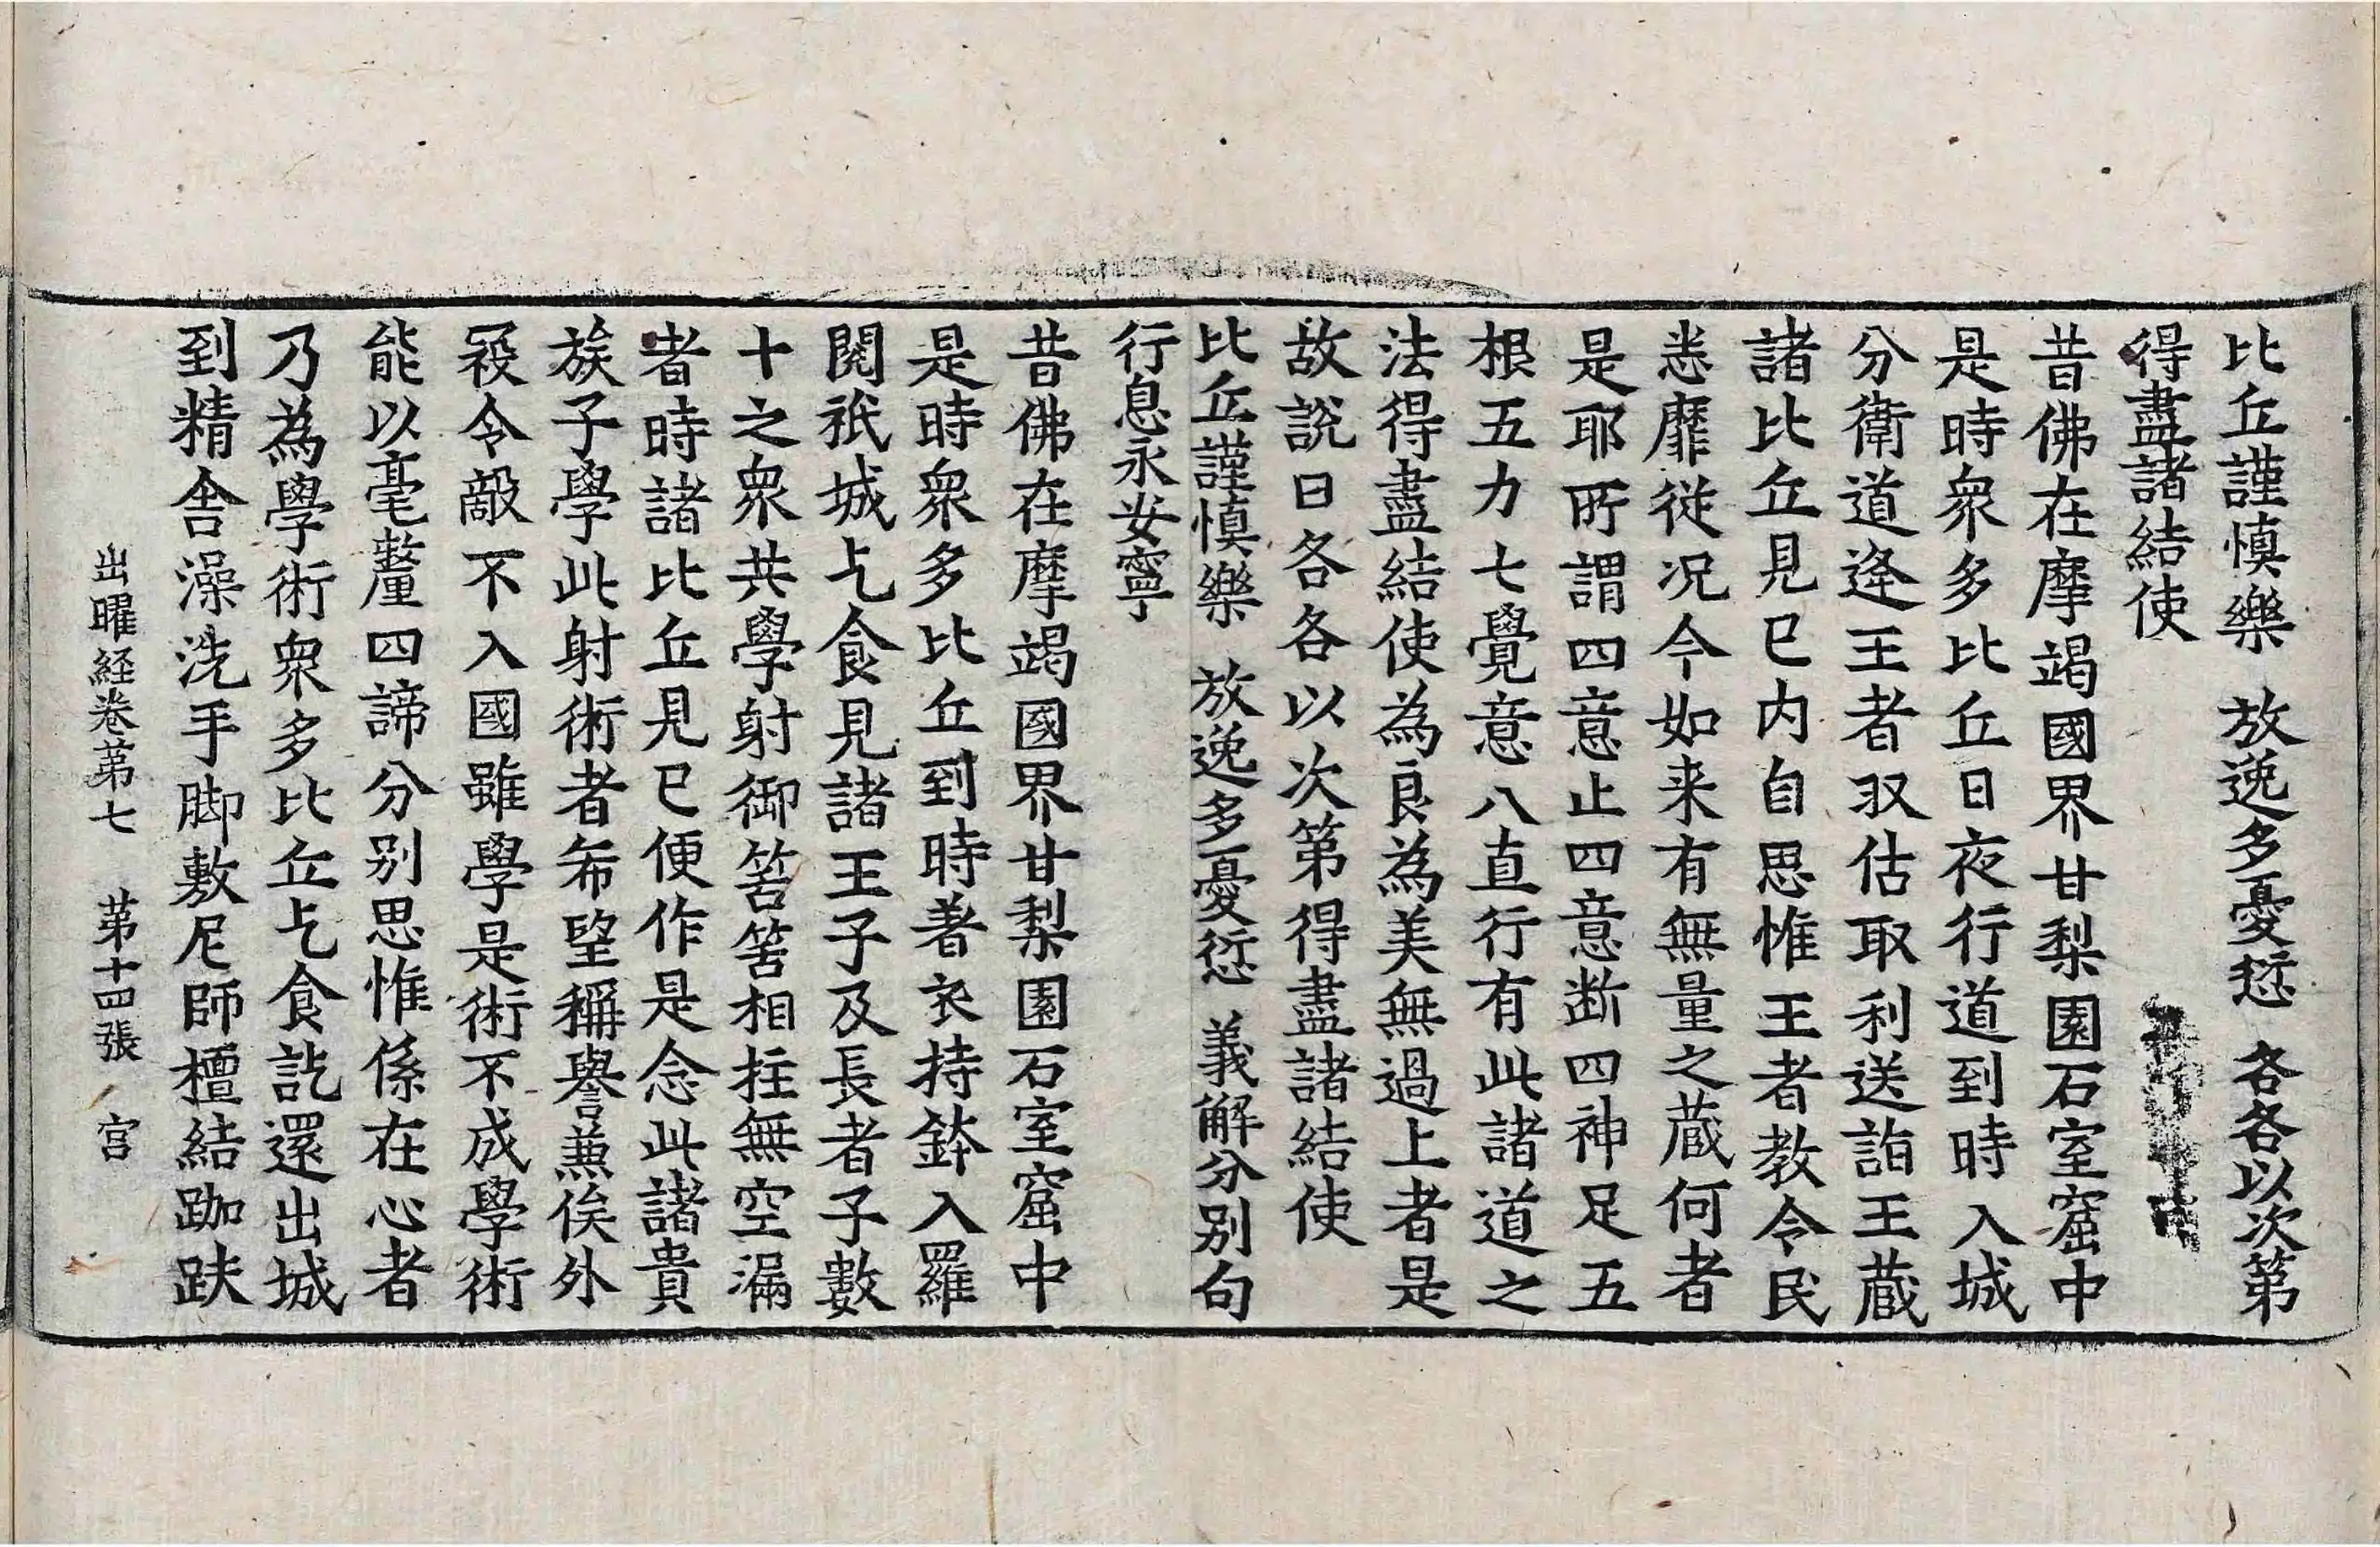 比丘謹慎樂　放逸多憂愆　各各以次第
得盡諸結使
昔佛在摩竭國界甘梨園石室窟中
是時衆多比丘日夜行道到時入城
分衛道逢王者収估取利送詣王蔵
諸比丘見已内自思惟王者教令民
悉靡従况今如来有無量之蔵何者
是耶所謂四意止四意断四神足五
根五力七覺意八直行有此諸道之
法得盡結使為良為美無過上者是
故説曰各各以次第得盡諸結使
比丘謹慎樂　放逸多憂愆　義解分别句
行息永安寧
昔佛在摩竭國界甘梨園石室窟中
是時衆多比丘到時著衣持鉢入羅
閱祇城乞食見諸王子及長者子數
十之衆共學射御筈筈相拄無空漏
者時諸比丘見已便作是念此諸貴
族子學此射術者希望稱譽兼俟外
冦令敵不入國雖學是術不成學術
能以毫釐四諦分别思惟係在心者
乃為學術衆多比丘乞食訖還出城
到精舍澡洗手脚敷尼師檀結跏趺
出曜経卷第七　第十四張　宫